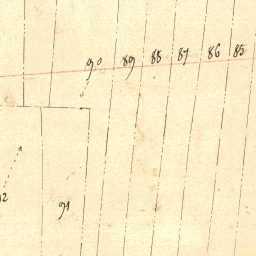 90 89 88 87 86 85
91